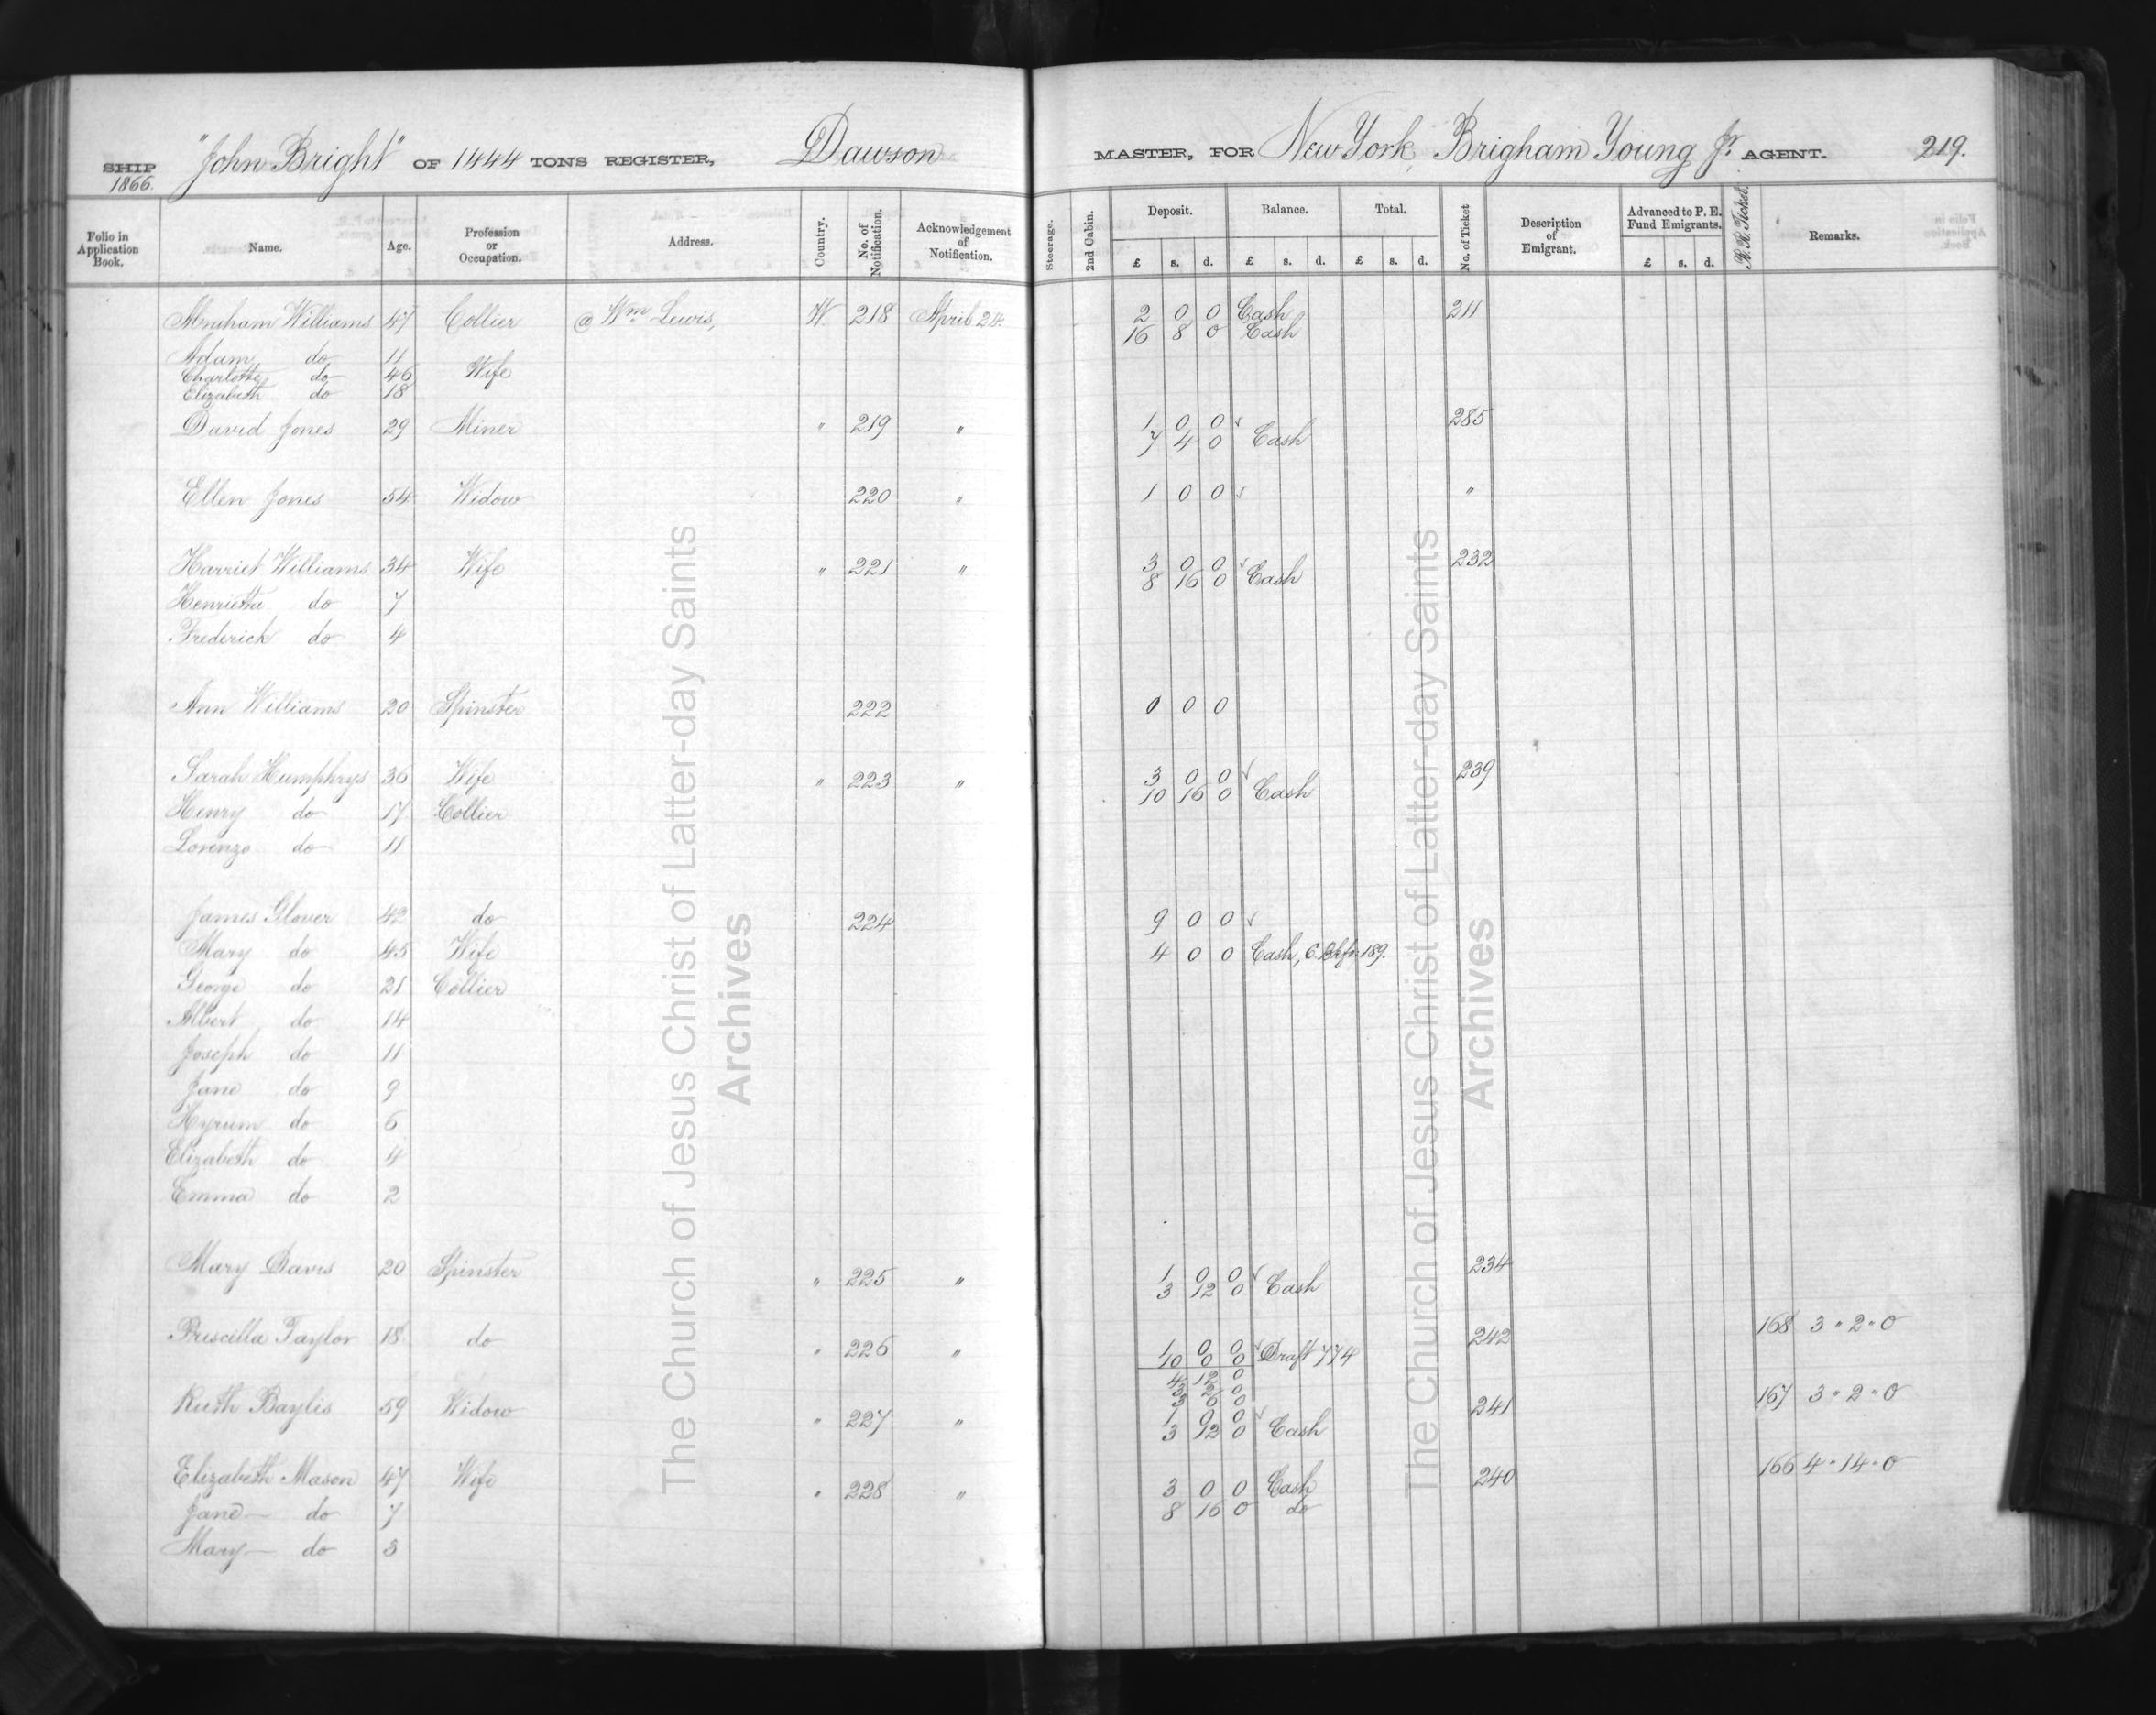 SHIP "John Bright" OF 1444 TONS REGISTER, Dawson MASTER, FOR New York, Brigham Young Jr. AGENT. 219.
1866.
Folio in Application Book. Name. Age. Profession or Occupation. Address. Country. No. of Notification. Acknowledgement of Notification. Steerage. 2nd Cabin. Deposit. Balance. Total. No. of Ticket Description of Emigrant. Advanced to P. E. Fund Emigrants. R. R. Ticket. Remarks.
£ s. d. £ s. d. £ s. d. £ s. d.
Abraham Williams 47 Collier @ Wm Lewis, W. 218 April 24. 2 0 0 Cash 211
16 8 0 Cash
Adam do 11
Charlotte do 46 Wife
Elizabeth do 18
David Jones 29 Miner " 219 " 1 0 0 ✓ 285
7 4 0 Cash
Ellen Jones 54 Widow 220 " 1 0 0 ✓ "
Harriet Williams 34 Wife " 221 " 3 0 0 ✓ 232
8 16 0 Cash
Henrietta do 7
Frederick do 4
Ann Williams 20 Spinster 222 0 0 0
Sarah Humphrys 36 Wife " 223 " 3 0 0 ✓ 239
10 16 0 Cash
Henry do 17 Collier
Lorenzo do 11
James Glover 42 do 224 9 0 0 ✓
Mary do 45 Wife 4 0 0 Cash, 189.
George do 21 Collier
Albert do 14
Joseph do 11
Jane do 9
Hyrum do 6
Elizabeth do 4
Emma do 2
Mary Davis 20 Spinster " 225 " 1 0 0 ✓ 234
3 12 0 Cash
Priscilla Taylor 18 do " 226 " 1 0 0 ✓ 242 168 3 " 2 " 0
10 0 0 Draft 774
4 12 0
3 2 0
3 6 0
Ruth Baylis 59 Widow " 227 " 1 0 0 ✓ 241 167 3 " 2 " 0
3 12 0 Cash
Elizabeth Mason 47 Wife " 228 " 3 0 0 Cash 240 166 4 " 14 " 0
Jane do 7 8 16 0 do
Mary do 3
The Church of Jesus Christ of Latter-day Saints
Archives
The Church of Jesus Christ of Latter-day Saints
Archives